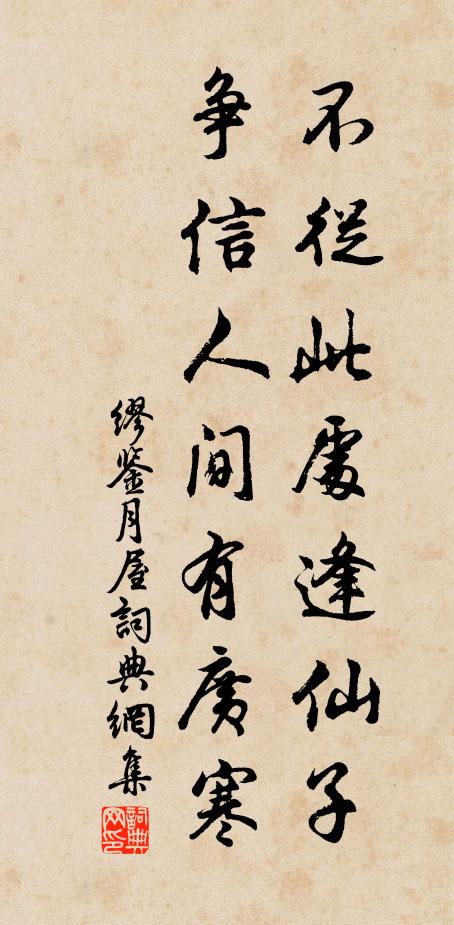 不從此處逢仙子
爭信人間有廣寒
繆鑒月屋詞典網集
詞典網印